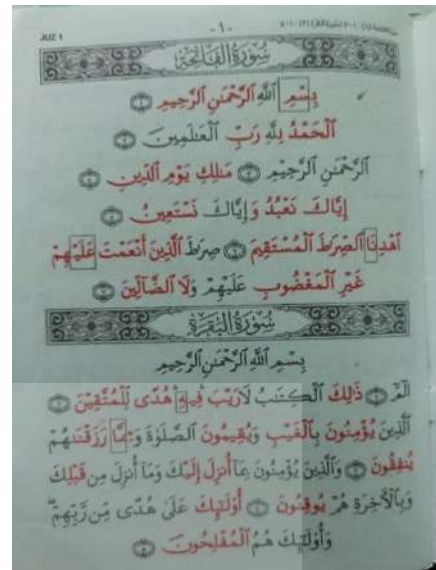 JUZ 1
- ١٠ -
سُورَةُ الفَاتِحَةِ
بِسْمِ اللَّهِ الرَّحْمَٰنِ الرَّحِيمِ ١
الْحَمْدُ لِلَّهِ رَبِّ الْعَٰلَمِينَ ٢
الرَّحْمَٰنِ الرَّحِيمِ ٣ مَٰلِكِ يَوْمِ الدِّينِ ٤
إِيَّاكَ نَعْبُدُ وَإِيَّاكَ نَسْتَعِينُ ٥
اهْدِنَا الصِّرَٰطَ الْمُسْتَقِيمَ ٦ صِرَٰطَ الَّذِينَ أَنْعَمْتَ عَلَيْهِمْ
غَيْرِ الْمَغْضُوبِ عَلَيْهِمْ وَلَا الضَّالِّينَ ٧
سُورَةُ البَقَرَةِ
بِسْمِ اللَّهِ الرَّحْمَٰنِ الرَّحِيمِ
الٓمٓ ١ ذَٰلِكَ الْكِتَٰبُ لَا رَيْبَ فِيهِ هُدًى لِلْمُتَّقِينَ ٢
الَّذِينَ يُؤْمِنُونَ بِالْغَيْبِ وَيُقِيمُونَ الصَّلَوٰةَ وَمِمَّا رَزَقْنَٰهُمْ
يُنفِقُونَ ٣ وَالَّذِينَ يُؤْمِنُونَ بِمَا أُنزِلَ إِلَيْكَ وَمَا أُنزِلَ مِن قَبْلِكَ
وَبِالْآخِرَةِ هُمْ يُوقِنُونَ ٤ أُوْلَٰئِكَ عَلَىٰ هُدًى مِّن رَّبِّهِمْ ۖ
وَأُوْلَٰئِكَ هُمُ الْمُفْلِحُونَ ٥